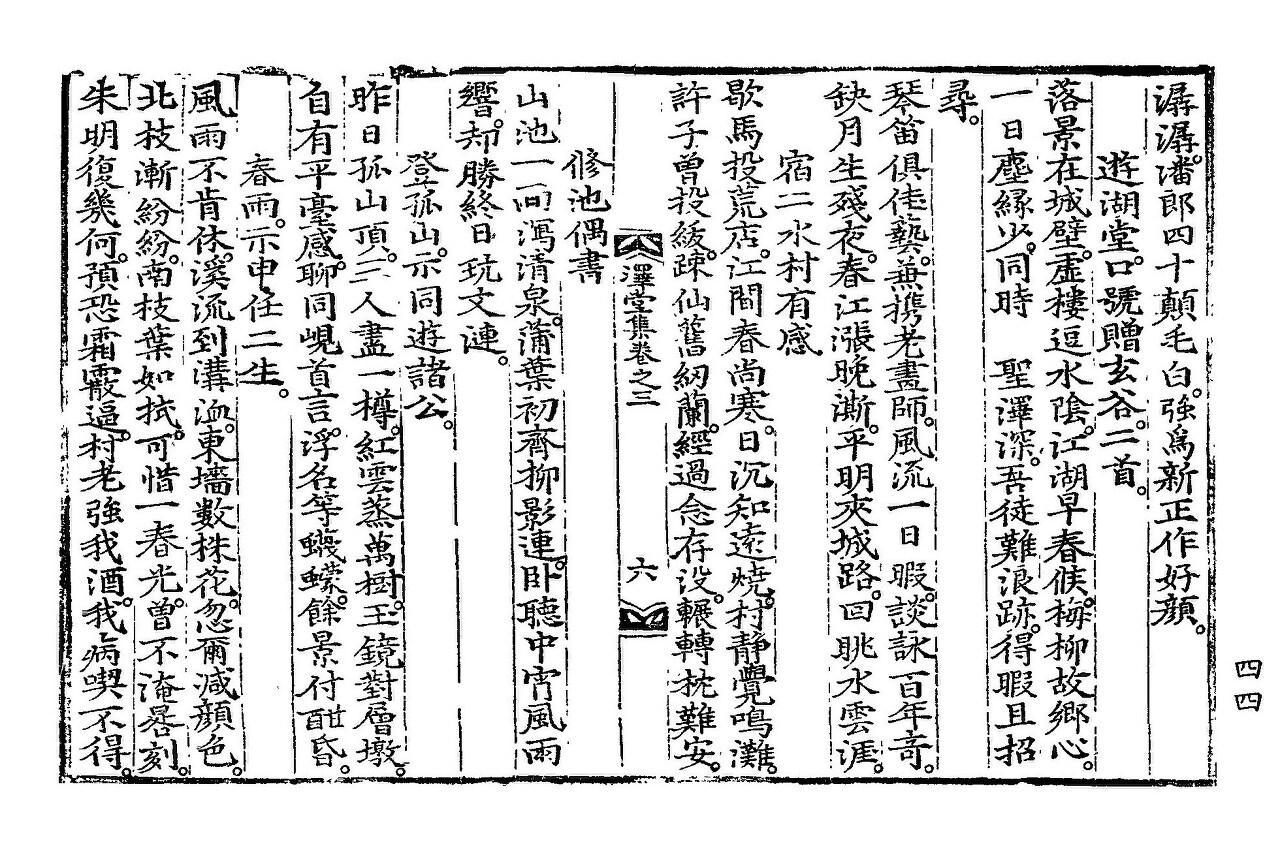 潺潺。潘郎四十顛毛白。強爲新正作好顔。
遊湖堂。口號贈玄谷。二首。
落景在城壁。虛樓逗水陰。江湖早春候。梅柳故鄕心。
一日塵緣少。同時 聖澤深。吾徒難浪跡。得暇且招
尋。
琴笛俱佳藝。兼携老畫師。風流一日暇。談詠百年奇。
缺月生殘夜。春江漲晚澌。平明夾城路。回眺水雲涯。
宿二水村有感
歇馬投荒店。江閣春尙寒。日沉知遠燒。村靜覺鳴灘。
許子曾投紱。疎仙舊紉蘭。經過念存沒。輾轉枕難安。
澤堂集卷之三 六
修池偶書
山池一一回瀉淸泉。蒲葉初齊柳影連。臥聽中宵風雨
響。却勝終日玩文漣。
登孤山。示同遊諸公。
昨日孤山頂。三人盡一樽。紅雲蒸萬樹。玉鏡對層墩。
自有平臺感。聊同峴首言。浮名等蠛蠓。餘景付酣昏。
春雨。示申任二生。
風雨不肯休。溪流到溝洫。東墻數株花。忽爾减顔色。
北枝漸紛紛。南枝葉如拭。可惜一春光。曾不淹晷刻。
朱明復幾何。預恐霜霰逼。村老強我酒。我病喫不得。
四四